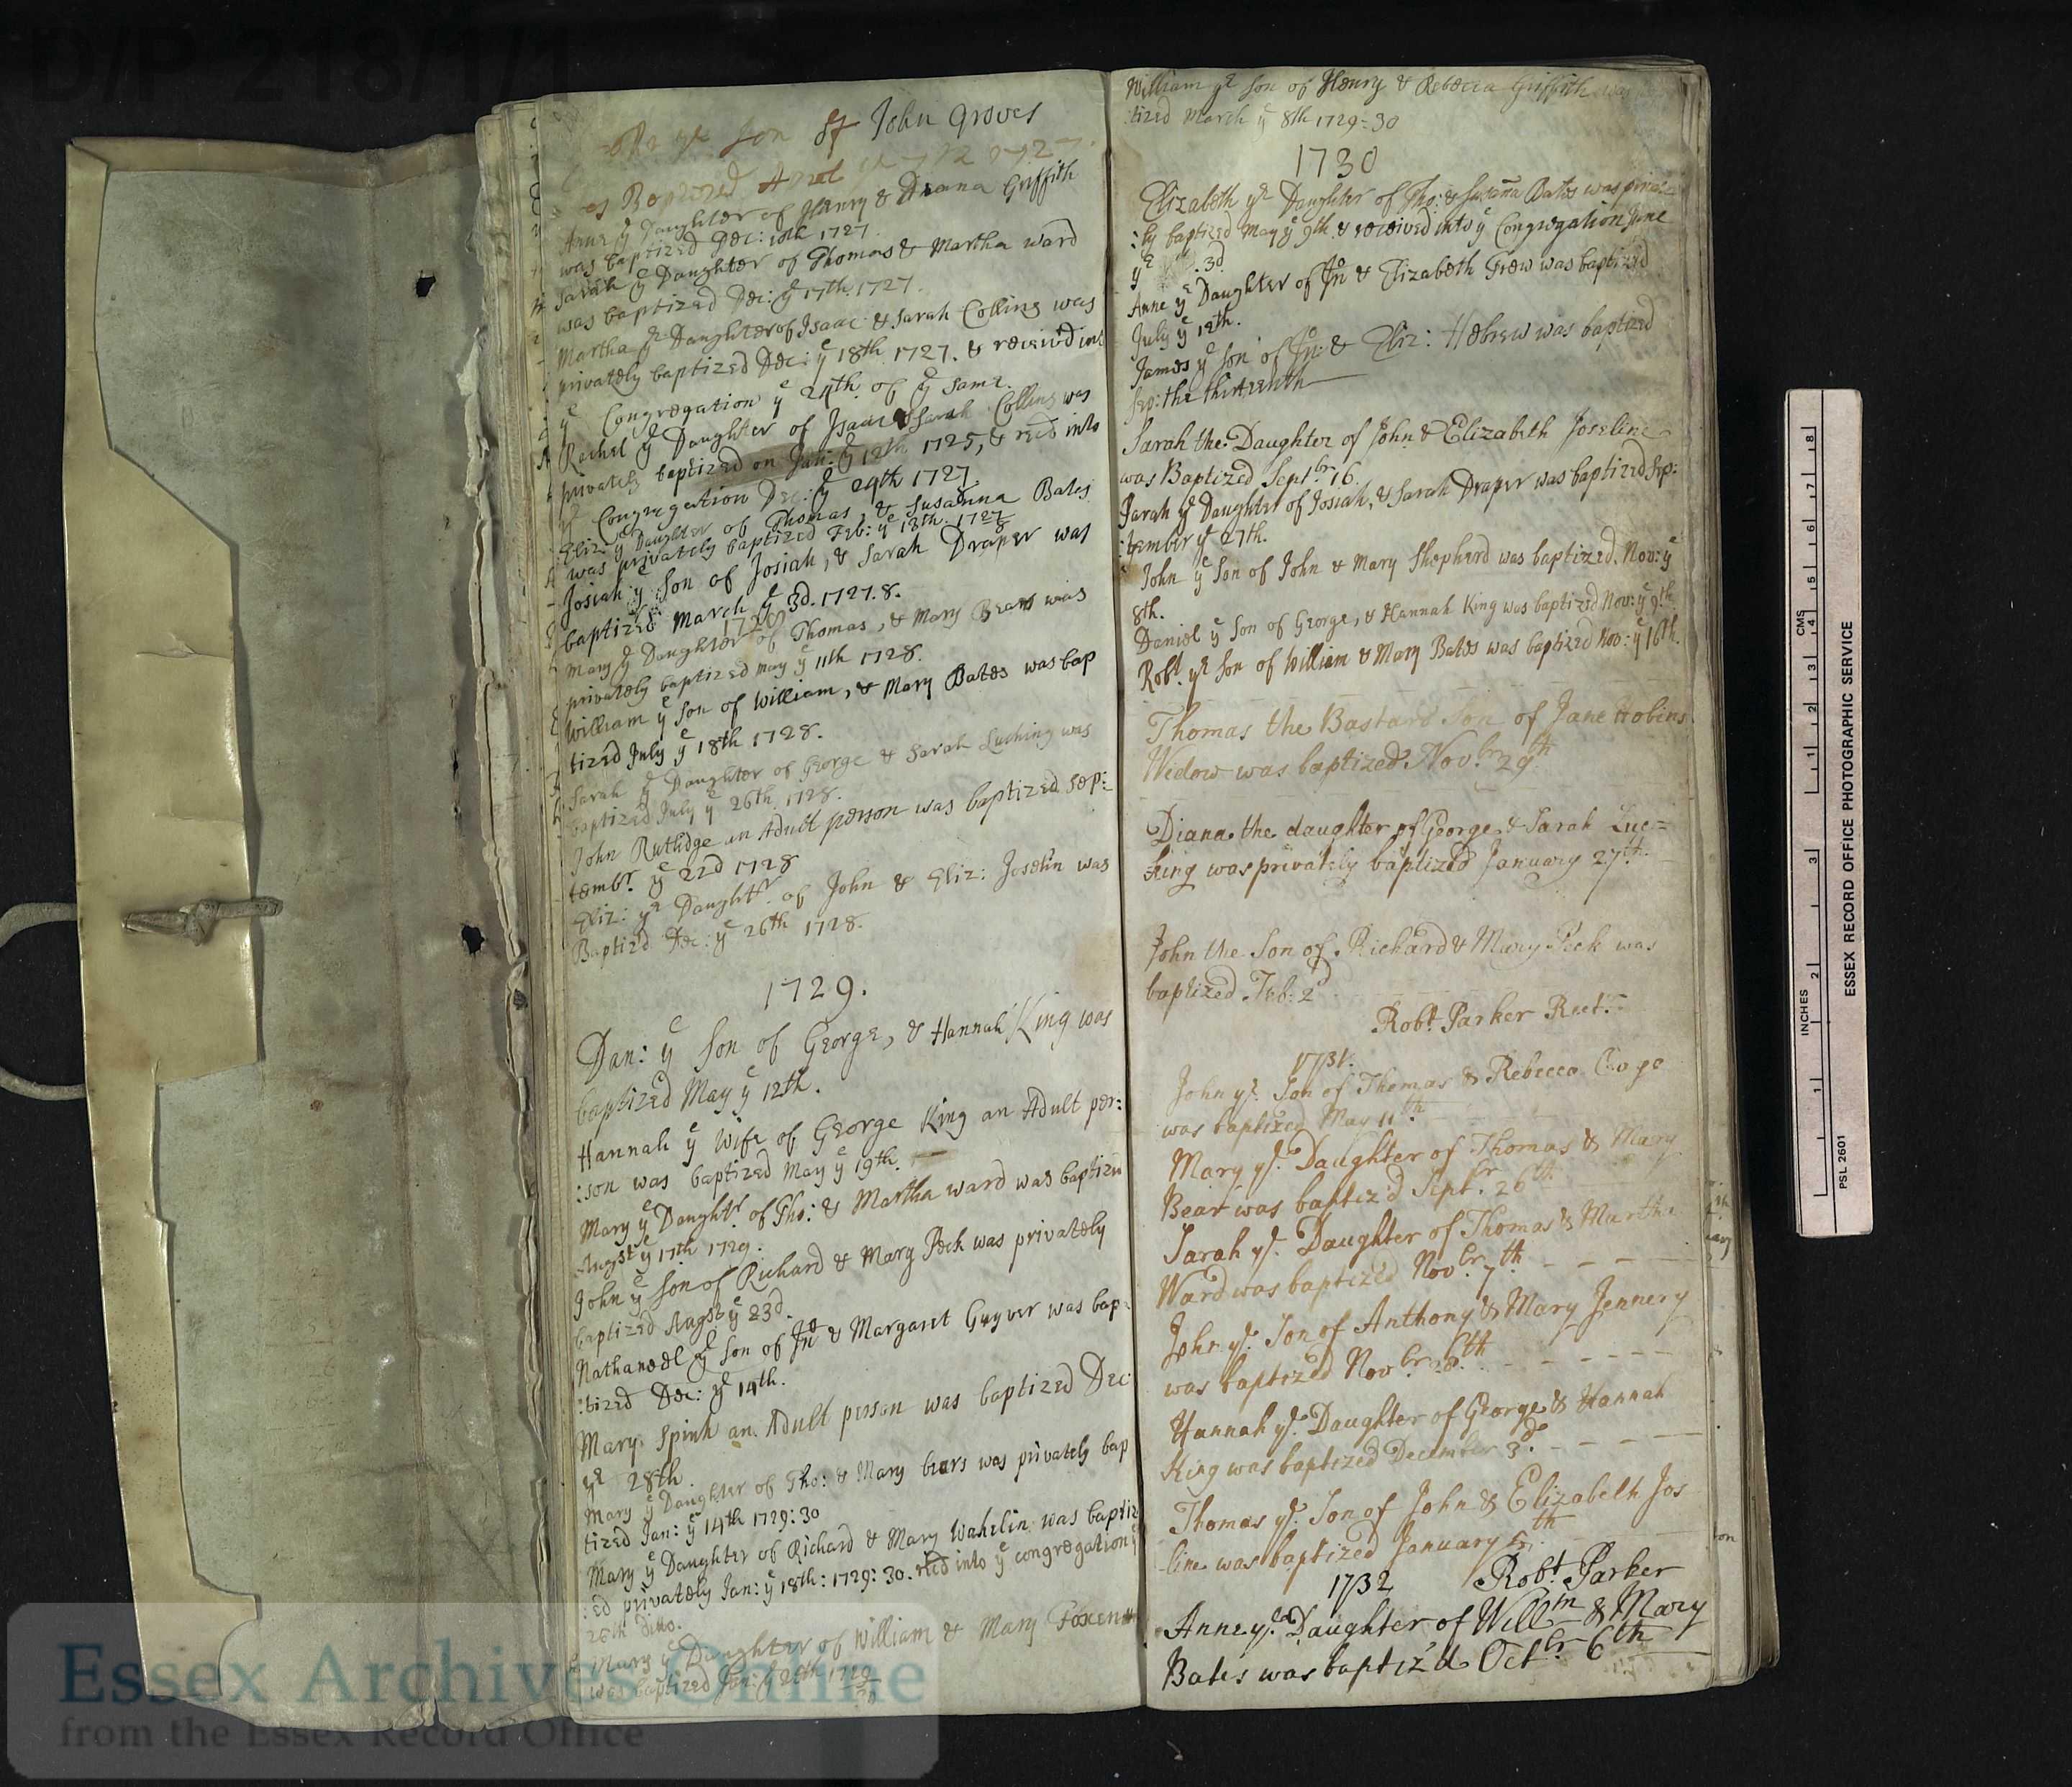 D/P 218/1/1
ye Son of John Groves
Baptized April 1727
Anne ye Daughter of Henry & Diana Griffith
was baptized Dec: 10th 1727
Sarah ye Daughter of Thomas & Martha ward
was baptized Dec: ye 17th. 1727.
Martha ye Daughter of Isaac & Sarah Collins was
privately baptized Dec: ye 18th. 1727. & receiv'd into
ye Congregation ye 24th. of ye Same.
Rachel ye Daughter of Isaac & Sarah Collins was
privately baptized on Jan: ye 12th 1725, & recd into
ye Congregation Dec: ye 24th 1727
Eliz: ye Daughter of Thomas, & Susanna Bates
was privately baptized Feb: ye 13th. 1727/8
Josiah ye Son of Josiah, & Sarah Draper was
baptized March ye 3d. 1727.8.
1728
Mary ye Daughter of Thomas, & Mary Bears was
privately baptized may ye 11th 1728.
William ye Son of William, & Mary Bates was bap
tized July ye 18th 1728.
Sarah ye Daughter of George & Sarah Lucking was
baptized July ye 26th. 1728.
John Rutlidge an Adult person was baptized Sep:
tembr. ye 22d 1728
Eliz: ye Daughtr. of John & Eliz: Joselin was
Baptizd Dec: ye 26th 1728.
1729.
Dan: ye Son of George, & Hannah King was
baptized May ye 12th.
Hannah ye Wife of George King an Adult per:
:son was baptized May ye 19th.
Mary ye Daughtr. of Tho: & Martha ward was baptizd
Augst ye 17th 1729.
John ye Son of Richard & Mary Peck was privately
baptized Augst ye 23d.
Nathanael ye Son of Jno & Margaret Guyver was bap:
:tized Dec: ye 14th.
Mary Spink an Adult person was baptized Dec:
ye 28th.
Mary ye Daughter of Tho: & Mary bears was privately bap
tized Jan: ye 14th 1729:30
Mary ye Daughter of Richard & Mary Wahelin was baptiz
:ed privately Jan: ye 18th: 1729:30. recd into ye congregation ye
26th ditto.
Mary ye Daughter of William & Mary Foxen
was baptized Jan: ye 1729/30
William ye Son of Henry & Rebecca Griffith was
:tized March ye 8th 1729:30
1730
Elizabeth ye Daughter of Tho: & Susanna Bates was privat
:ly baptized May ye 9th. & received into ye Congregation June
ye 3d
Anne ye Daughter of Jno & Elizabeth Frew was baptized
July ye 12th.
James ye Son of Jn: & Eliz: Hebrew was baptized
Sep: the thirteenth
Sarah the Daughter of John & Elizabeth Joseline
was Baptized Septbr. 16.
Sarah ye Daughter of Josiah, & Sarah Draper was baptized Sep:
:tember ye 27th.
John ye Son of John & Mary Shepherd was baptized. Nov: ye
8th.
Daniel ye Son of George, & Hannah King was baptized Nov: ye 9th.
Robt. ye Son of William & Mary Bates was baptized Nov: ye 16th.
Thomas the Bastard Son of Jane Hobins
Widow was baptized Novbr. 29th
Diana the daughter of George & Sarah Luc=
king was privately baptized January 27th.
John the Son of Richard & Mary Peck was
baptized Feb: 2d
Robt. Parker Rect.
1731.
John ye. Son of Thomas & Rebecca
was baptized May 11th
Mary ye. Daughter of Thomas & Mary
Bear was baptiz'd Septbr. 26th
Sarah ye. Daughter of Thomas & Martha
Ward was baptiz'd Novbr. 7th
John ye. Son of Anthony & Mary Jennery
was baptized Novbr. 28th
Hannah ye. Daughter of George & Hannah
King was baptized December 3d.
Thomas ye. Son of John & Elizabeth Jos
-line was baptized January 5th
1732 Robt. Parker
Anne ye. Daughter of Willm & Mary
Bates was baptiz'd Octbr 6th
Essex Archives Online
from the Essex Record Office
INCHES 1 2 3 CMS 1 2 3 4 5 6 7 8
PSL 2601 ESSEX RECORD OFFICE PHOTOGRAPHIC SERVICE